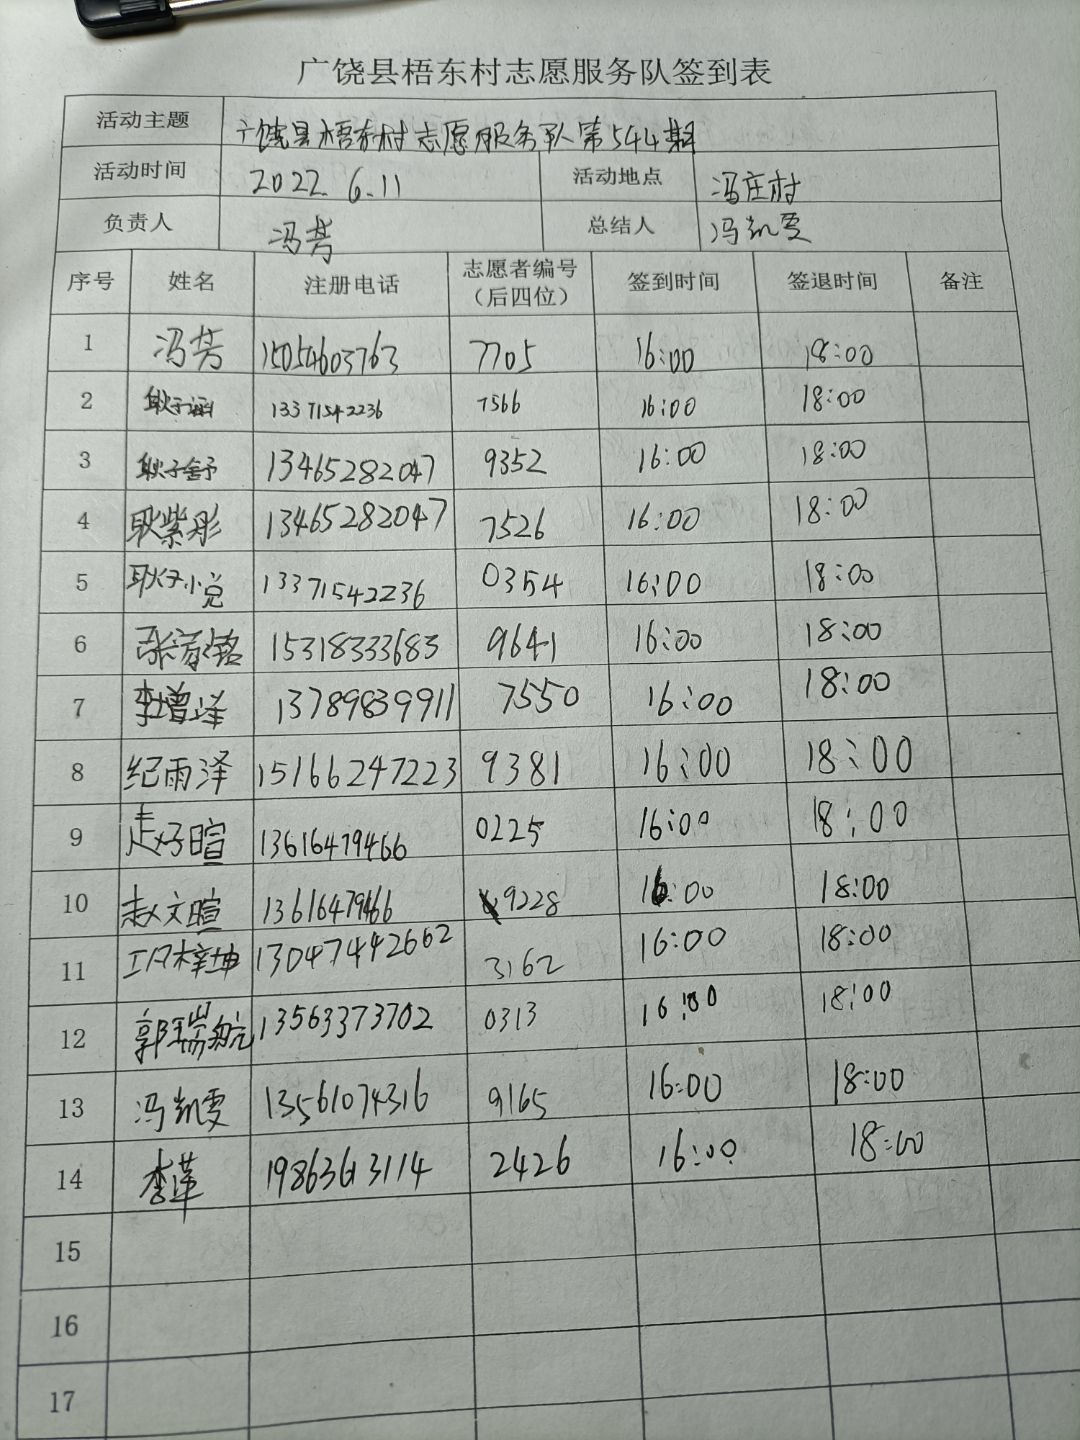 广饶县梧东村志愿服务队签到表
活动主题 广饶县梧东村志愿服务队第544期
活动时间 2022.6.11 活动地点 冯庄村
负责人 冯芳 总结人 冯凯雯
序号 姓名 注册电话 志愿者编号（后四位） 签到时间 签退时间 备注
1 冯芳 15054603763 7705 16:00 18:00
2 耿子涵 13371542236 7566 16:00 18:00
3 耿子舒 13465282047 9352 16:00 18:00
4 耿紫彤 13465282047 7526 16:00 18:00
5 耿小悦 13371542236 0354 16:00 18:00
6 15318333683 9641 16:00 18:00
7 李增泽 13789839911 7550 16:00 18:00
8 纪雨泽 15166247223 9381 16:00 18:00
9 赵妤暄 13616479466 0225 16:00 18:00
10 赵文暄 13616479466 9228 16:00 18:00
11 13047442662 3162 16:00 18:00
12 郭瑞航 13563373702 0313 16:00 18:00
13 冯凯雯 13561074316 9165 16:00 18:00
14 李莲 19863613114 2426 16:00 18:00
15
16
17